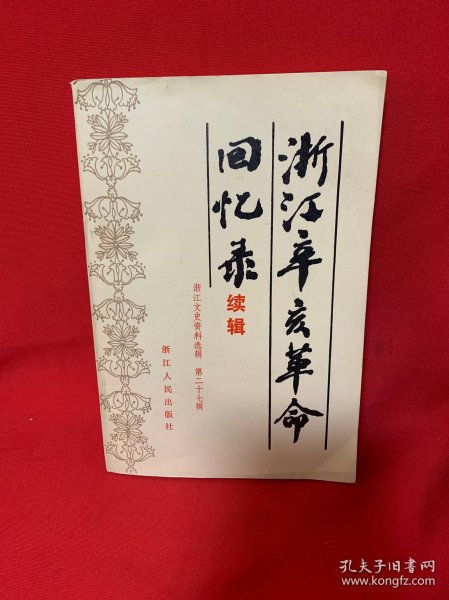 浙江辛亥革命
回忆录
续辑
浙江文史资料选辑 第二十七辑
浙江人民出版社
孔夫子旧书网
www.kongfz.com